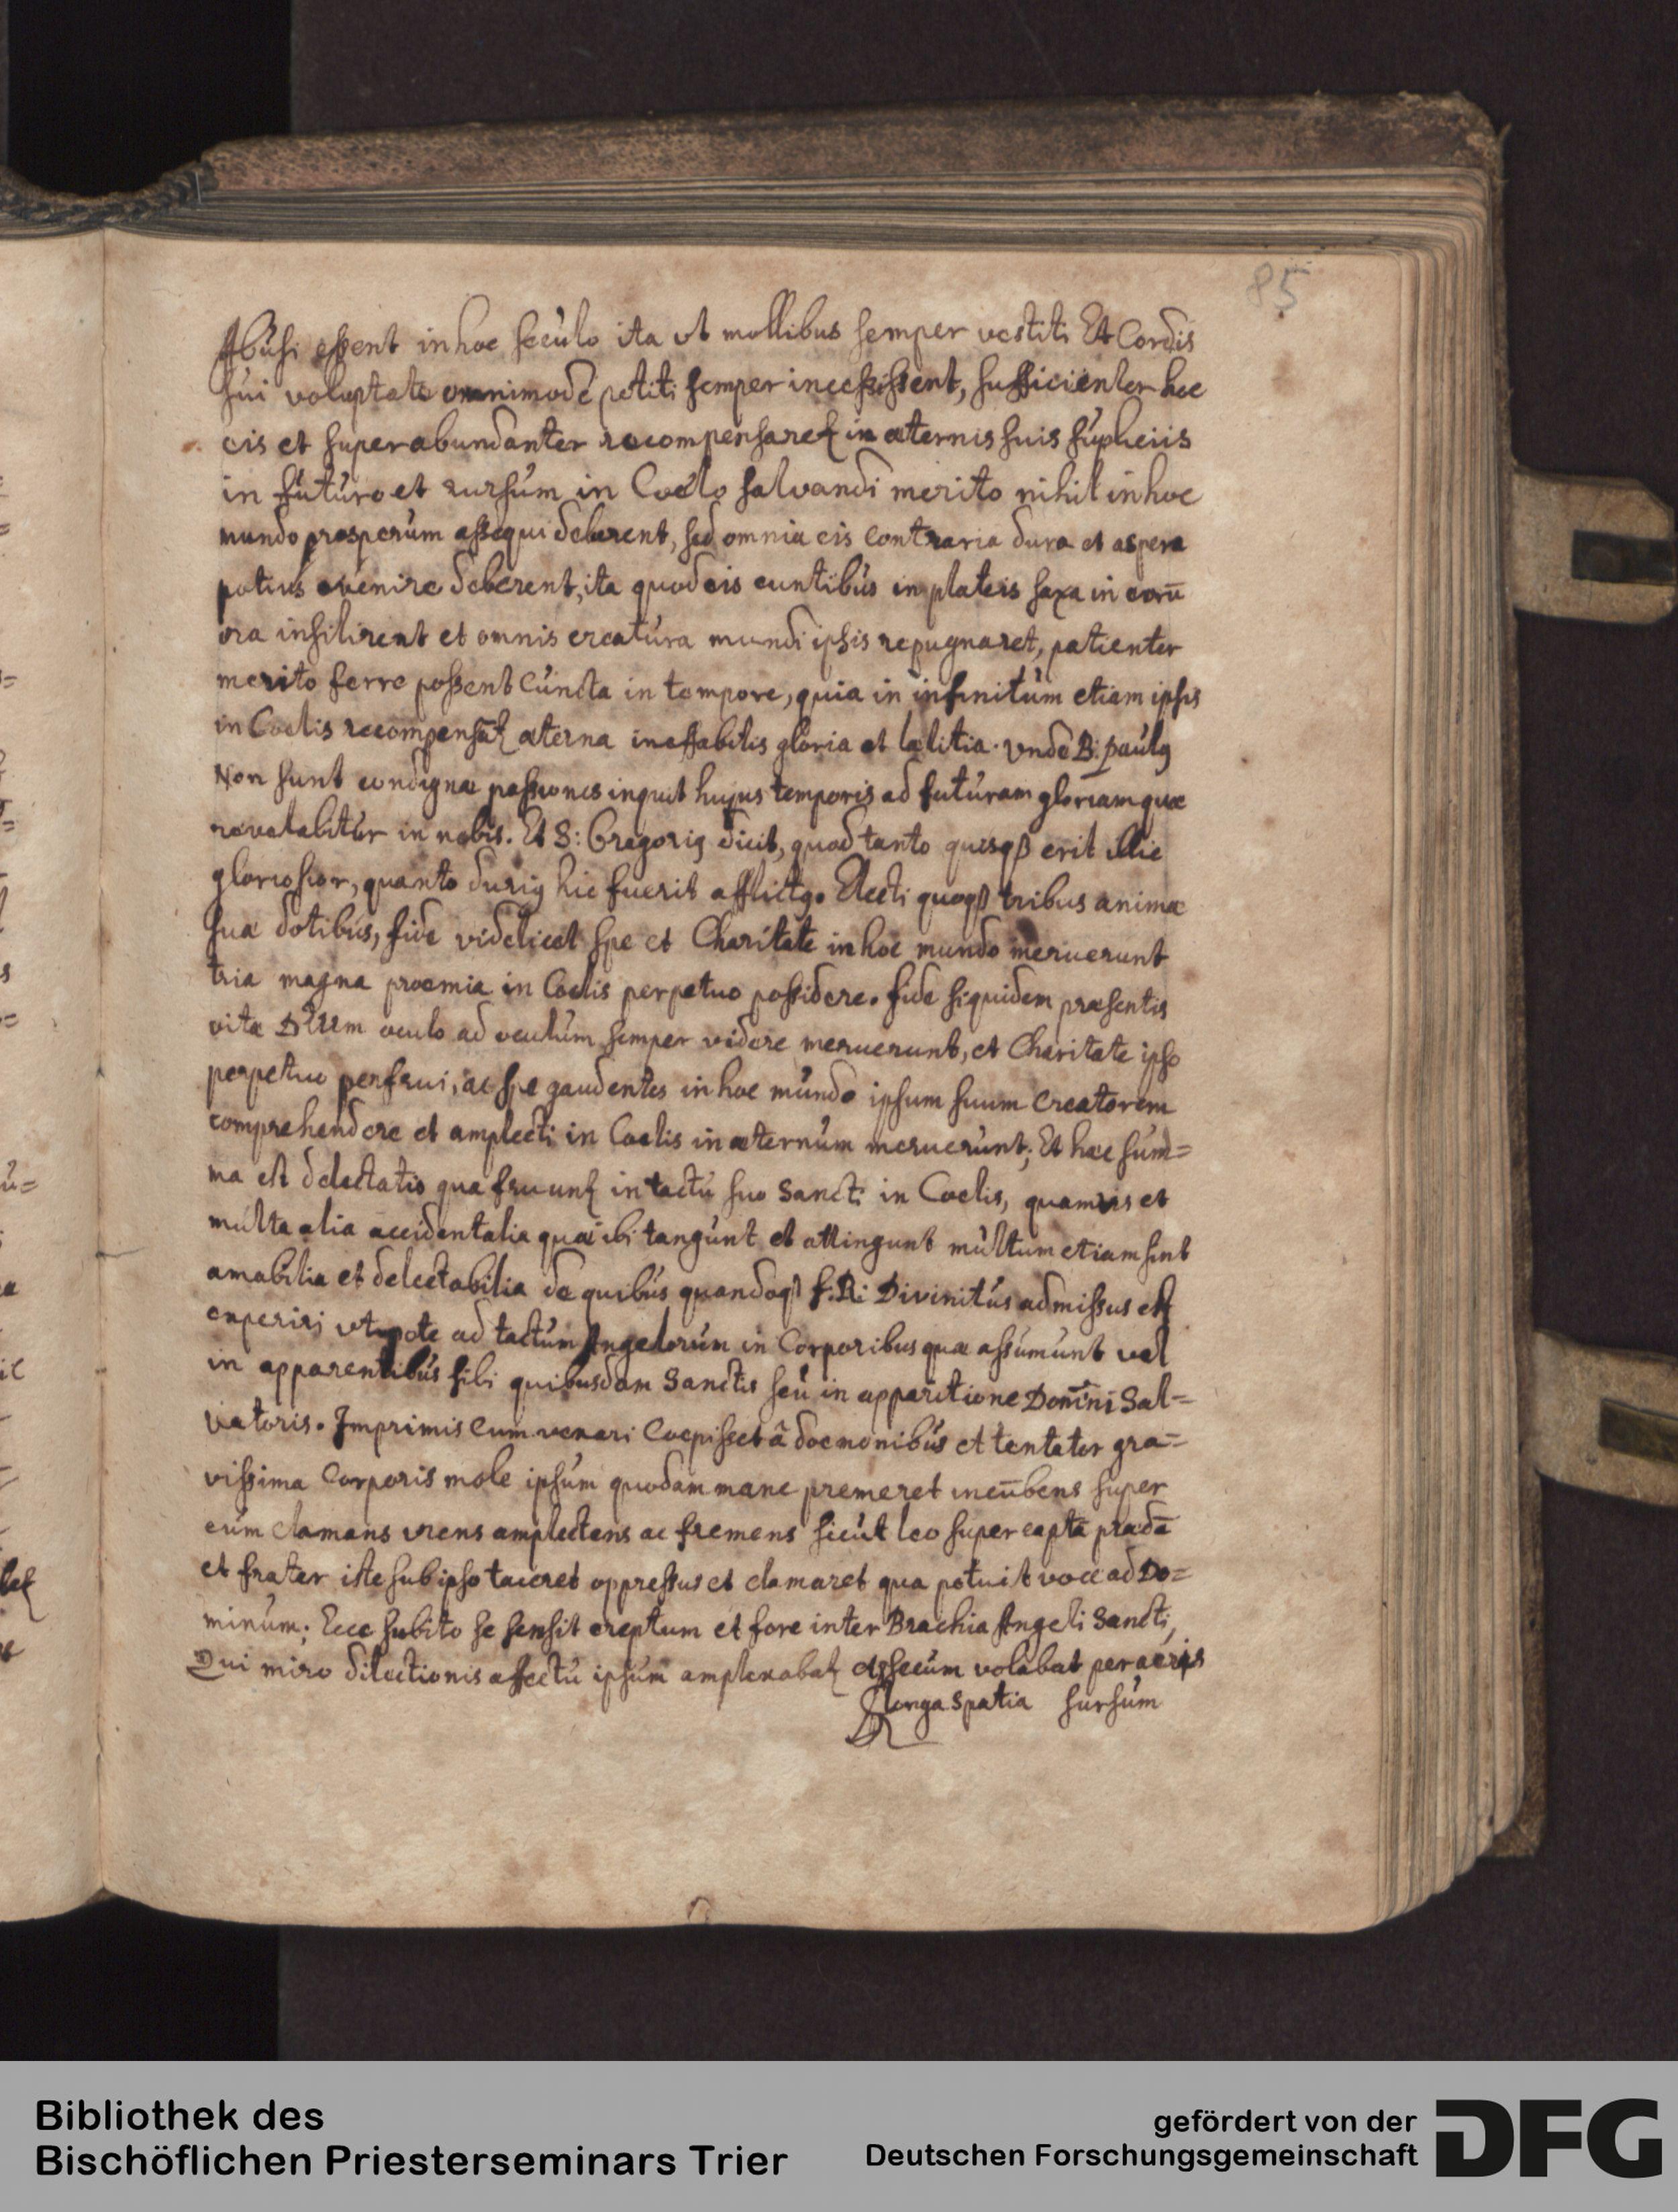 85
Abusi essent in hoc seculo ita vt mollibus semper vestiti Et Cordis
sui voluptate omnimode petiti semper incessissent, sufficienter hec
eis et superabundanter recompensaret̃ in æternis suis supliciis
in futuro et rursum in Coelo salvandi merito nihil in hoc
mundo prosperum assequi deberent, sed omnia eis contraria dura et aspera
potius evenire deberent, ita quod eis euntibus in plateis saxa in eorū
ora insilirent et omnis creatura mundi ipsis repugnaret, patienter
merito ferre possent cuncta in tempore, quia in infinitum etiam ipsis
in Coelis recompensat̃ æterna ineffabilis gloria et lætitia. vnde B: pauly
Non sunt condignæ passiones inquit hujus temporis ad futuram gloriam quæ
revelabitur in nobis. Et S: Gregoriꝯ dicit, quod tanto quisqß erit illic
gloriosior, quanto duriꝯ hic fuerit afflictꝯ. Electi quoqß tribus animæ
suæ dotibus, fide videlicet spe et Charitate in hoc mundo meruerunt
tria magna proemia in Coelis perpetuo possidere. fide siquidem præsentis
vitæ Deum oculo ad oculum semper videre meruerunt, et Charitate ipso
perpetuo perfrui, ac spe gaudentes in hoc mundo ipsum suum Creatorem
comprehendere et amplecti in Coelis in æternum meruerunt; Et hæc sum=
ma est delectatio qua fruunt̃ in tactu suo Sancti in Coelis, quamvis et
multa alia accidentalia quæ ibi tangunt et attingunt multum etiam sint
amabilia et delectabilia de quibus quandoqß f: R: Divinitus admissus est
experiri vtpote ad tactum Angelorum in Corporibus quæ assumunt vel
in apparentibus sibi quibusdam Sanctis seu in apparitione Domini Sal=
vatoris. Imprimis cum vexari Coepisset â doemonibus et tentator gra=
vissima Corporis mole ipsum quodam mane premeret incūbens super
eum clamans vrens amplectens ac fremens sicut leo super captā prædā
et frater iste sub ipso taceret oppressus et clamaret qua potuit voce ad Do=
minum; Ecce subito se sensit ereptum et fore inter Brachia Angeli Sancti,
Qui miro dilectionis affectu ipsum amplexabat̃ secum volabat per aeris
longa spatia sursum
Bibliothek des
Bischöflichen Priesterseminars Trier
gefördert von der
Deutschen Forschungsgemeinschaft
DFG